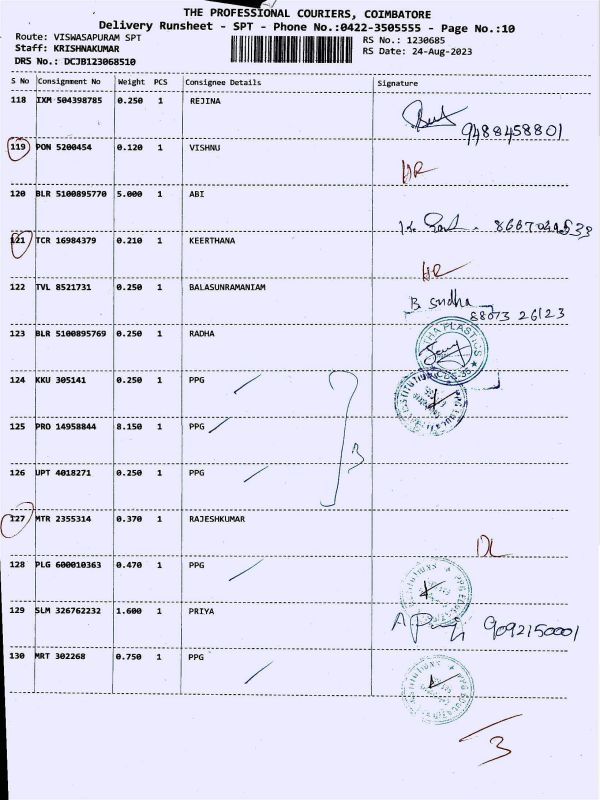 THE PROFESSIONAL COURIERS, COIMBATORE
Delivery Runsheet - SPT - Phone No.:0422-3505555 - Page No.:10
Route: VISWASAPURAM SPT
RS No.: 1230685
Staff: KRISHNAKUMAR
RS Date: 24-Aug-2023
DRS No.: DCJB123068510
S No Consignment No Weight PCS Consignee Details Signature
118 IXM 504398785 0.250 1 REJINA
9488458801
119 PON 5200454 0.120 1 VISHNU
120 BLR 5100895770 5.000 1 ABI
121 TCR 16984379 0.210 1 KEERTHANA
122 TVL 8521731 0.250 1 BALASUNRAMANIAM
B. Sudha
88073 26123
123 BLR 5100895769 0.250 1 RADHA
124 KKU 305141 0.250 1 PPG
125 PRO 14958844 8.150 1 PPG
3
126 UPT 4018271 0.250 1 PPG
127 MTR 2355314 0.370 1 RAJESHKUMAR
DL
128 PLG 600010363 0.470 1 PPG
129 SLM 326762232 1.600 1 PRIYA
9092150001
130 MRT 302268 0.750 1 PPG
3